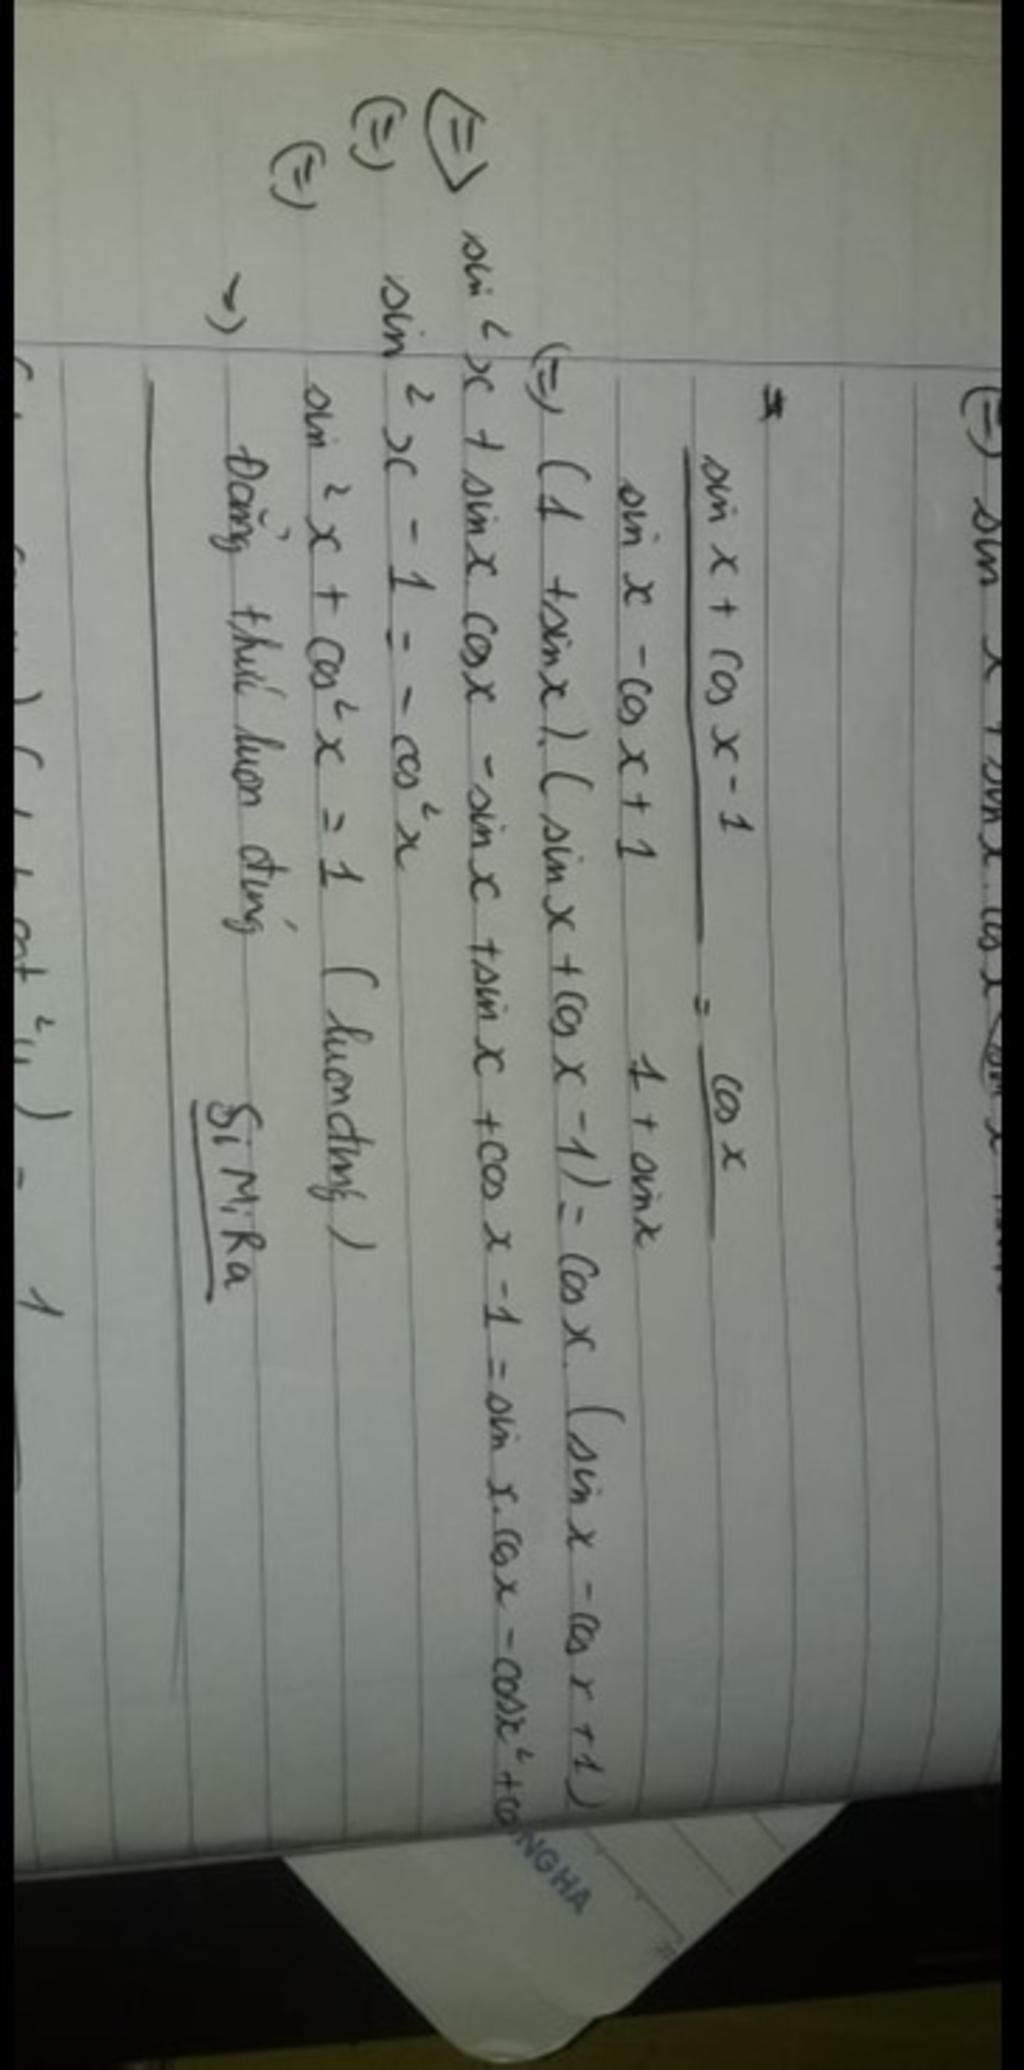 (=) sin x + sinx. cos x
=
sin x + cos x - 1 = cos x
sin x - cos x + 1 1 + sinx
(=) (1 + sinx). (sin x + cos x - 1) = cos x. (sin x - cos x + 1)
<=> sin²x + sinx cosx - sinx + sin x + cos x - 1 = sin x. cosx - cosx² + co
(=) sin²x - 1 = - cos²x
(=) sin²x + cos²x = 1 (luon đúng)
~) Đẳng thức luôn đúng SiMiRa
= 1
NGHA